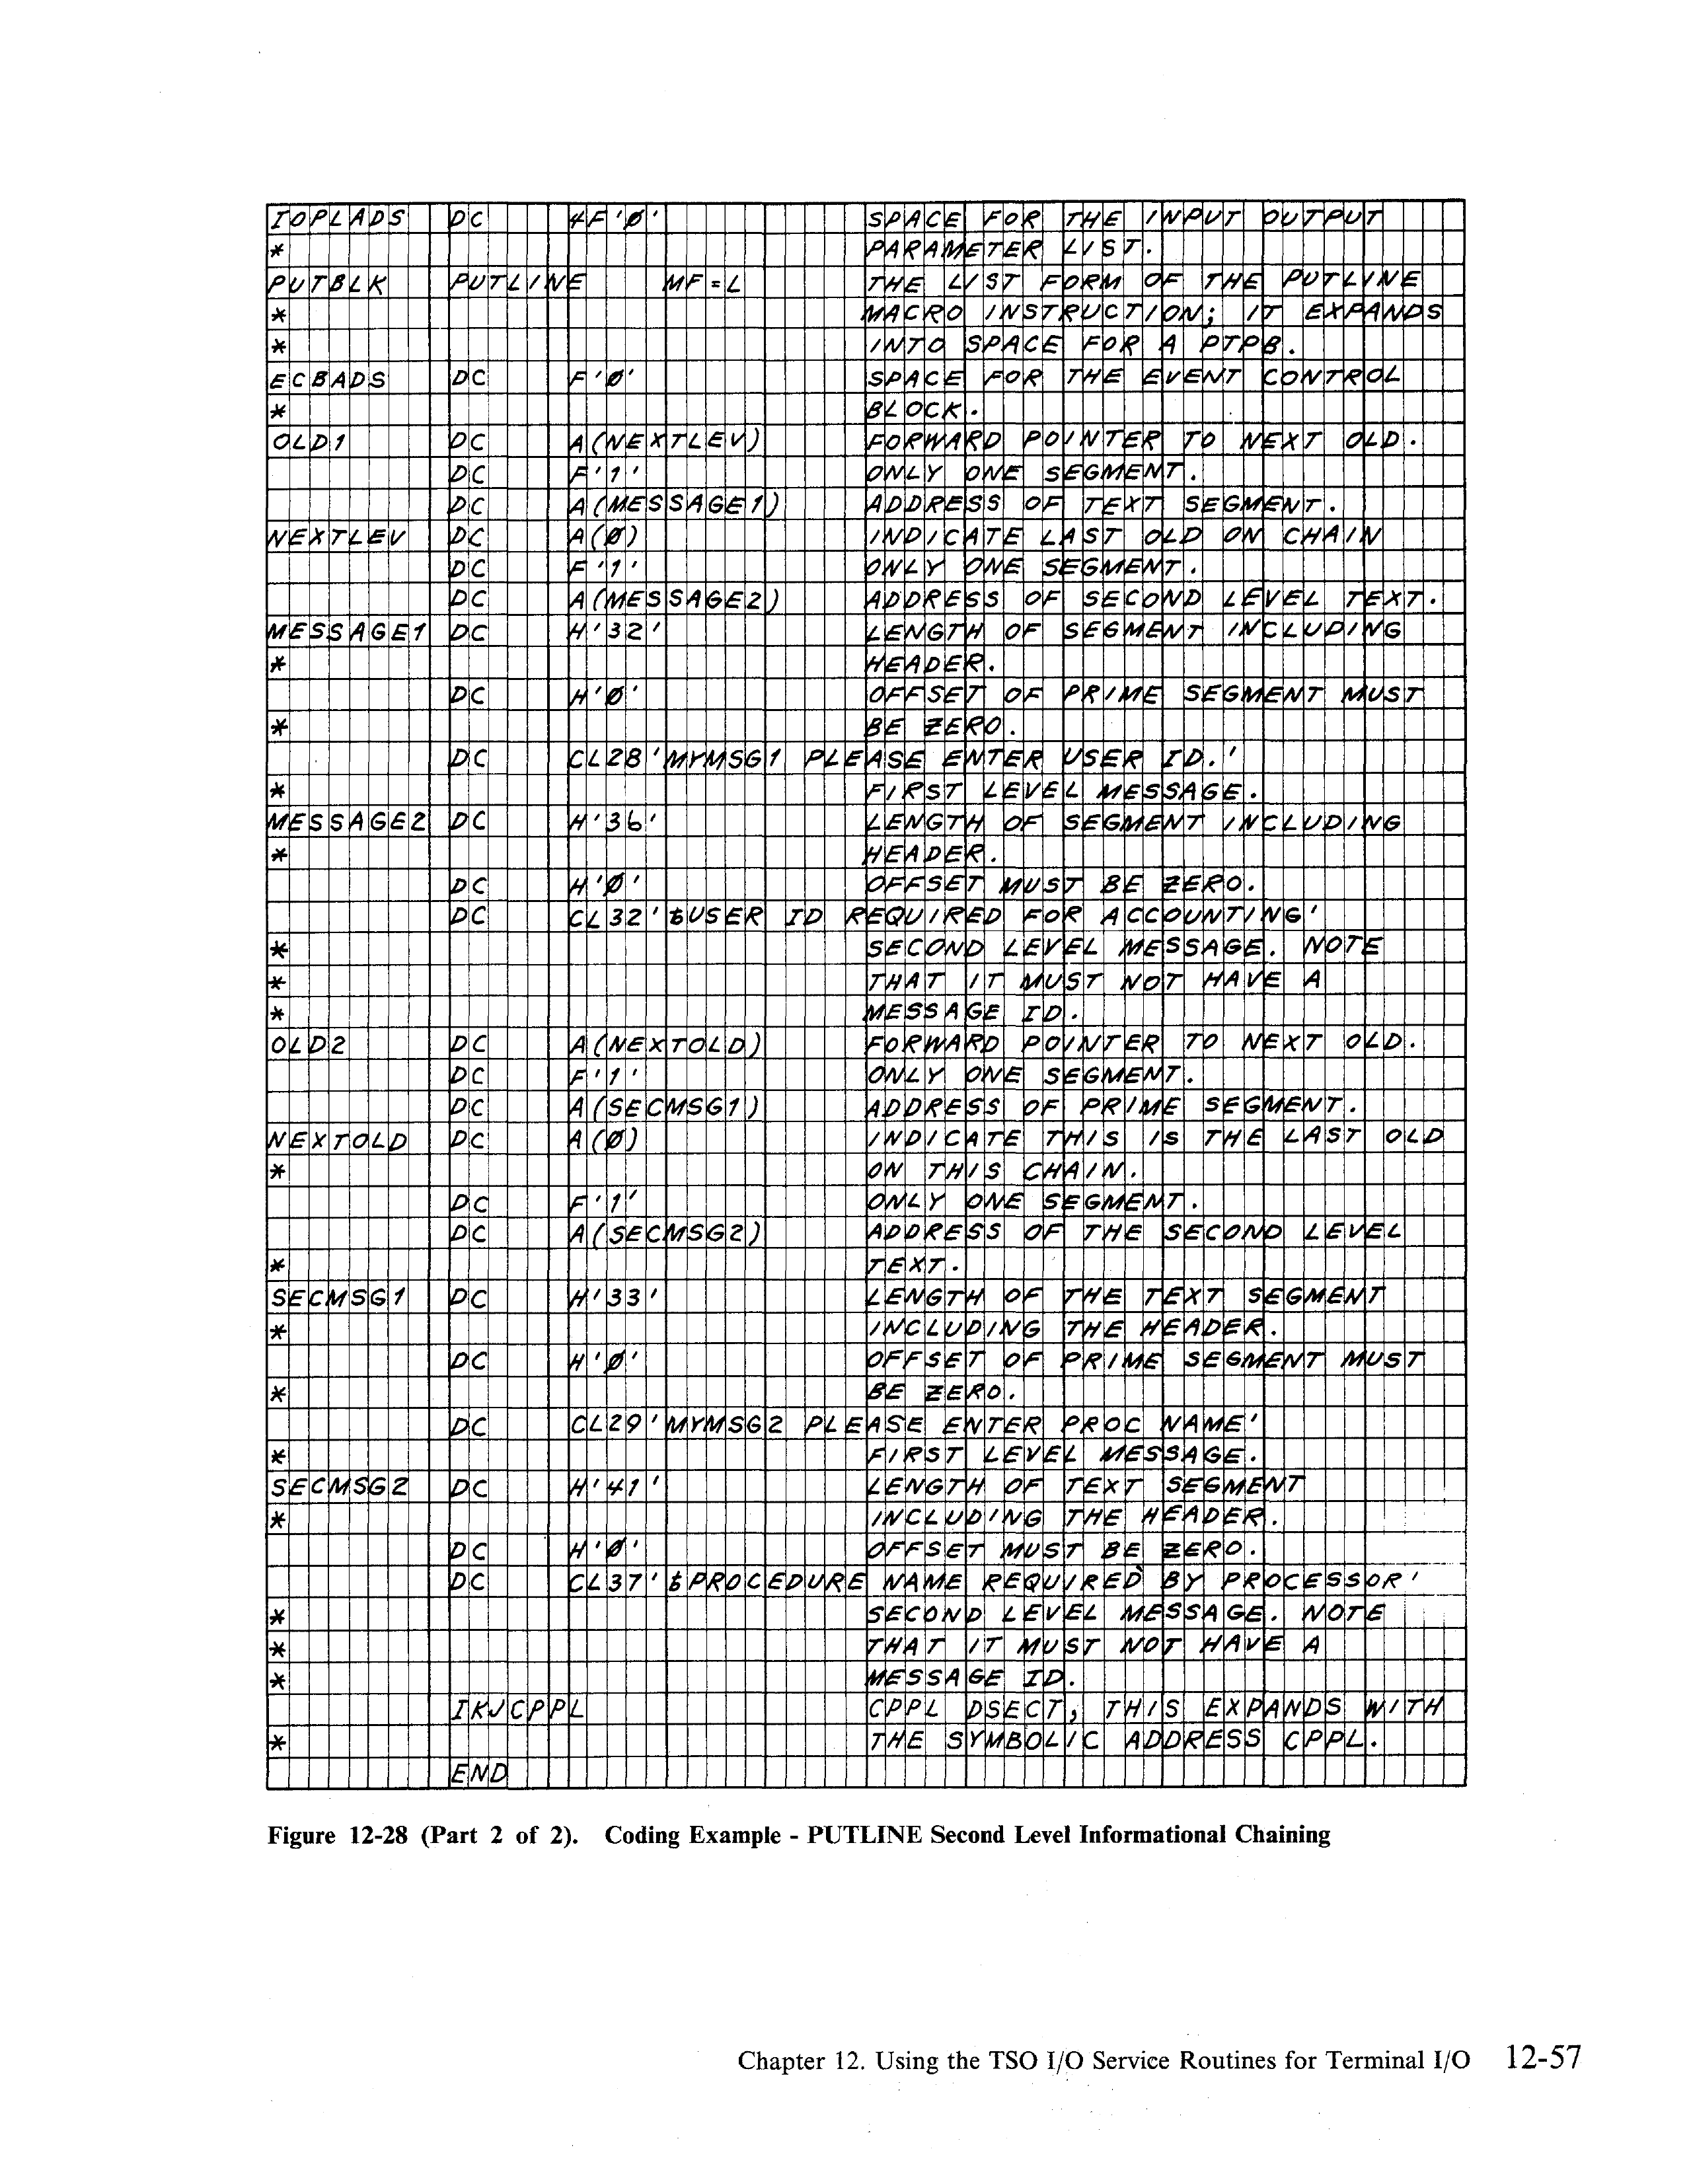 IOPLADS  DC    4F'0'          SPACE FOR THE INPUT OUTPUT
*                             PARAMETER LIST.
PUTBLK   PUTLINE    MF=L      THE LIST FORM OF THE PUTLINE
*                             MACRO INSTRUCTION; IT EXPANDS
*                             INTO SPACE FOR A PTPB.
ECBADS   DC    F'0'           SPACE FOR THE EVENT CONTROL
*                             BLOCK.
OLD1     DC    A(NEXTLEV)     FORWARD POINTER TO NEXT OLD.
         DC    F'1'           ONLY ONE SEGMENT.
         DC    A(MESSAGE1)    ADDRESS OF TEXT SEGMENT.
NEXTLEV  DC    A(0)           INDICATE LAST OLD ON CHAIN
         DC    F'1'           ONLY ONE SEGMENT.
         DC    A(MESSAGE2)    ADDRESS OF SECOND LEVEL TEXT.
MESSAGE1 DC    H'32'          LENGTH OF SEGMENT INCLUDING
*                             HEADER.
         DC    H'0'           OFFSET OF PRIME SEGMENT MUST
*                             BE ZERO.
         DC    CL28'MYMSG1 PLEASE ENTER USER ID.'
*                             FIRST LEVEL MESSAGE.
MESSAGE2 DC    H'36'          LENGTH OF SEGMENT INCLUDING
*                             HEADER.
         DC    H'0'           OFFSET MUST BE ZERO.
         DC    CL32'ƀUSER ID REQUIRED FOR ACCOUNTING'
*                             SECOND LEVEL MESSAGE. NOTE
*                             THAT IT MUST NOT HAVE A
*                             MESSAGE ID.
OLD2     DC    A(NEXTOLD)     FORWARD POINTER TO NEXT OLD.
         DC    F'1'           ONLY ONE SEGMENT.
         DC    A(SECMSG1)     ADDRESS OF PRIME SEGMENT.
NEXTOLD  DC    A(0)           INDICATE THIS IS THE LAST OLD
*                             ON THIS CHAIN.
         DC    F'1'           ONLY ONE SEGMENT.
         DC    A(SECMSG2)     ADDRESS OF THE SECOND LEVEL
*                             TEXT.
SECMSG1  DC    H'33'          LENGTH OF THE TEXT SEGMENT
*                             INCLUDING THE HEADER.
         DC    H'0'           OFFSET OF PRIME SEGMENT MUST
*                             BE ZERO.
         DC    CL29'MYMSG2 PLEASE ENTER PROC NAME'
*                             FIRST LEVEL MESSAGE.
SECMSG2  DC    H'41'          LENGTH OF TEXT SEGMENT
*                             INCLUDING THE HEADER.
         DC    H'0'           OFFSET MUST BE ZERO.
         DC    CL37'ƀPROCEDURE NAME REQUIRED BY PROCESSOR'
*                             SECOND LEVEL MESSAGE. NOTE
*                             THAT IT MUST NOT HAVE A
*                             MESSAGE ID.
         IKJCPPL              CPPL DSECT; THIS EXPANDS WITH
*                             THE SYMBOLIC ADDRESS CPPL.
         END
Figure 12-28 (Part 2 of 2). Coding Example - PUTLINE Second Level Informational Chaining
Chapter 12. Using the TSO I/O Service Routines for Terminal I/O 12-57